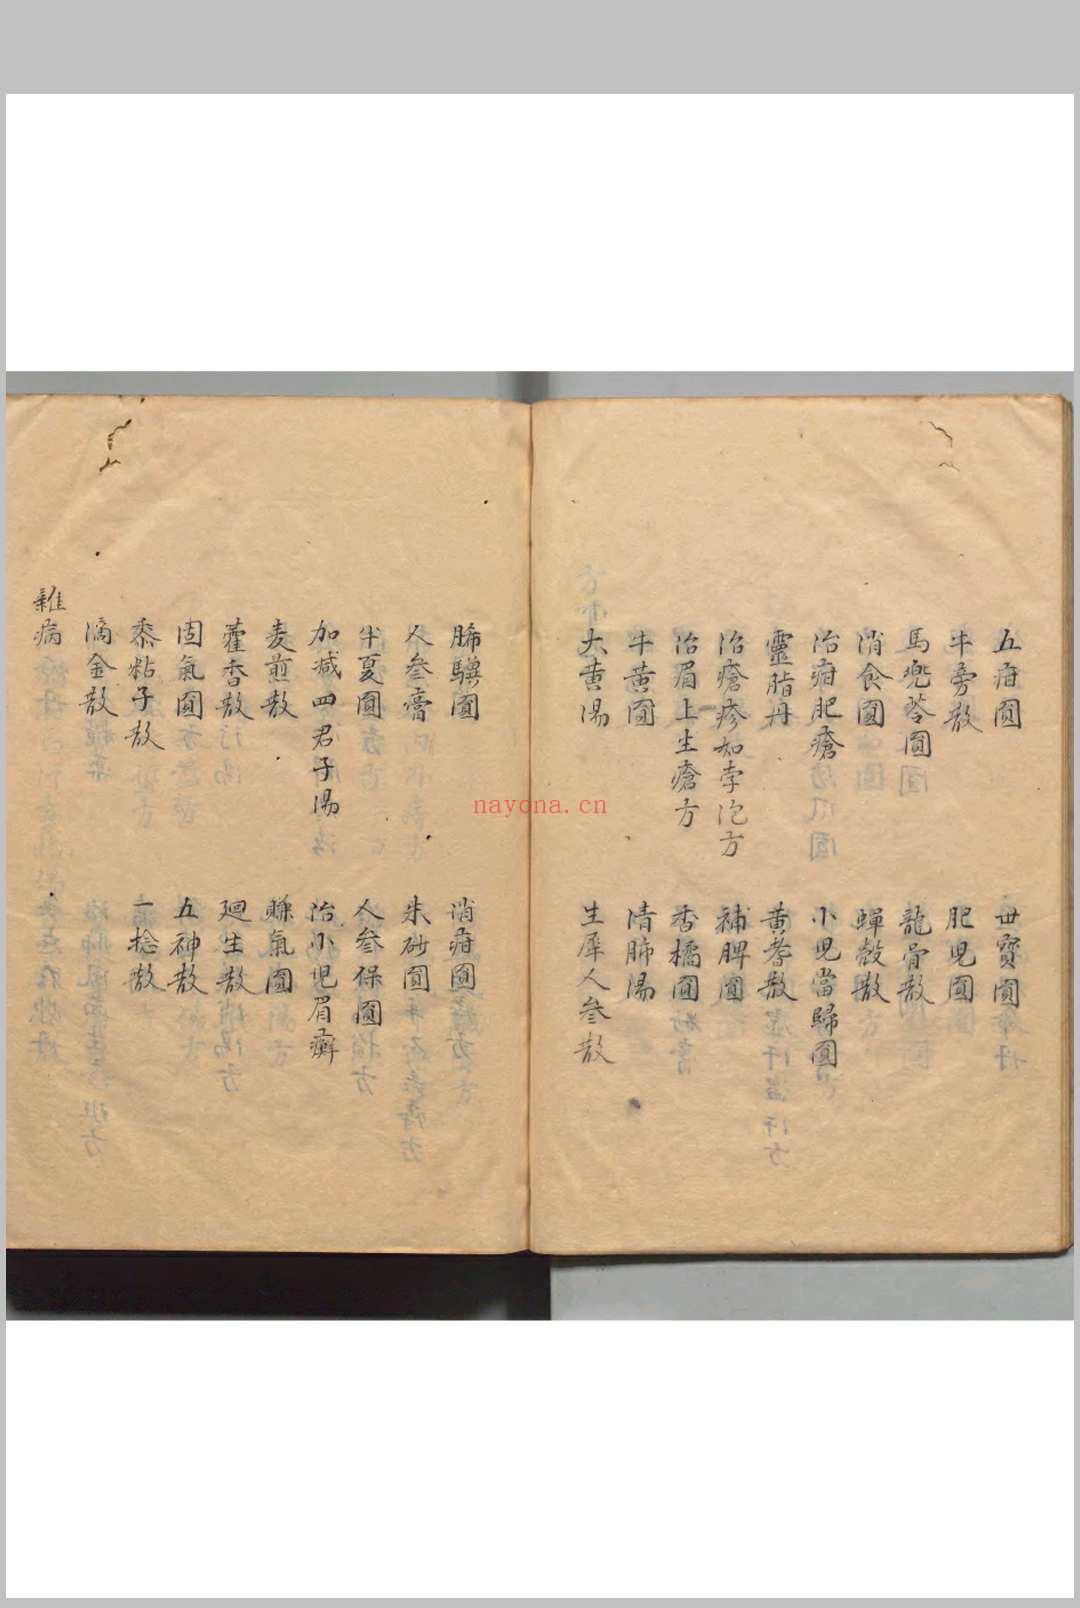 五疳圓 世寶圓
牛旁散 肥児圓
馬兜苓圓 龍骨散
消食圓 蟬殼散
治疳肥瘡 小児當歸圓
靈脂丹 黄耆散
治瘡疹如李泡方 補脾圓
治眉上生瘡方 香橘圓
牛黄圓 清肺湯
大黄湯 生犀人参散
圓 消疳圓
人参膏 朱砂圓
半夏圓 人参保圓
加减四君子湯 治小児眉癬
麦煎散 氣圓
藿香散 廻生散
固氣圓 五神散
黍粘子散 一捻散
滴金散
雜病
nayona.cn